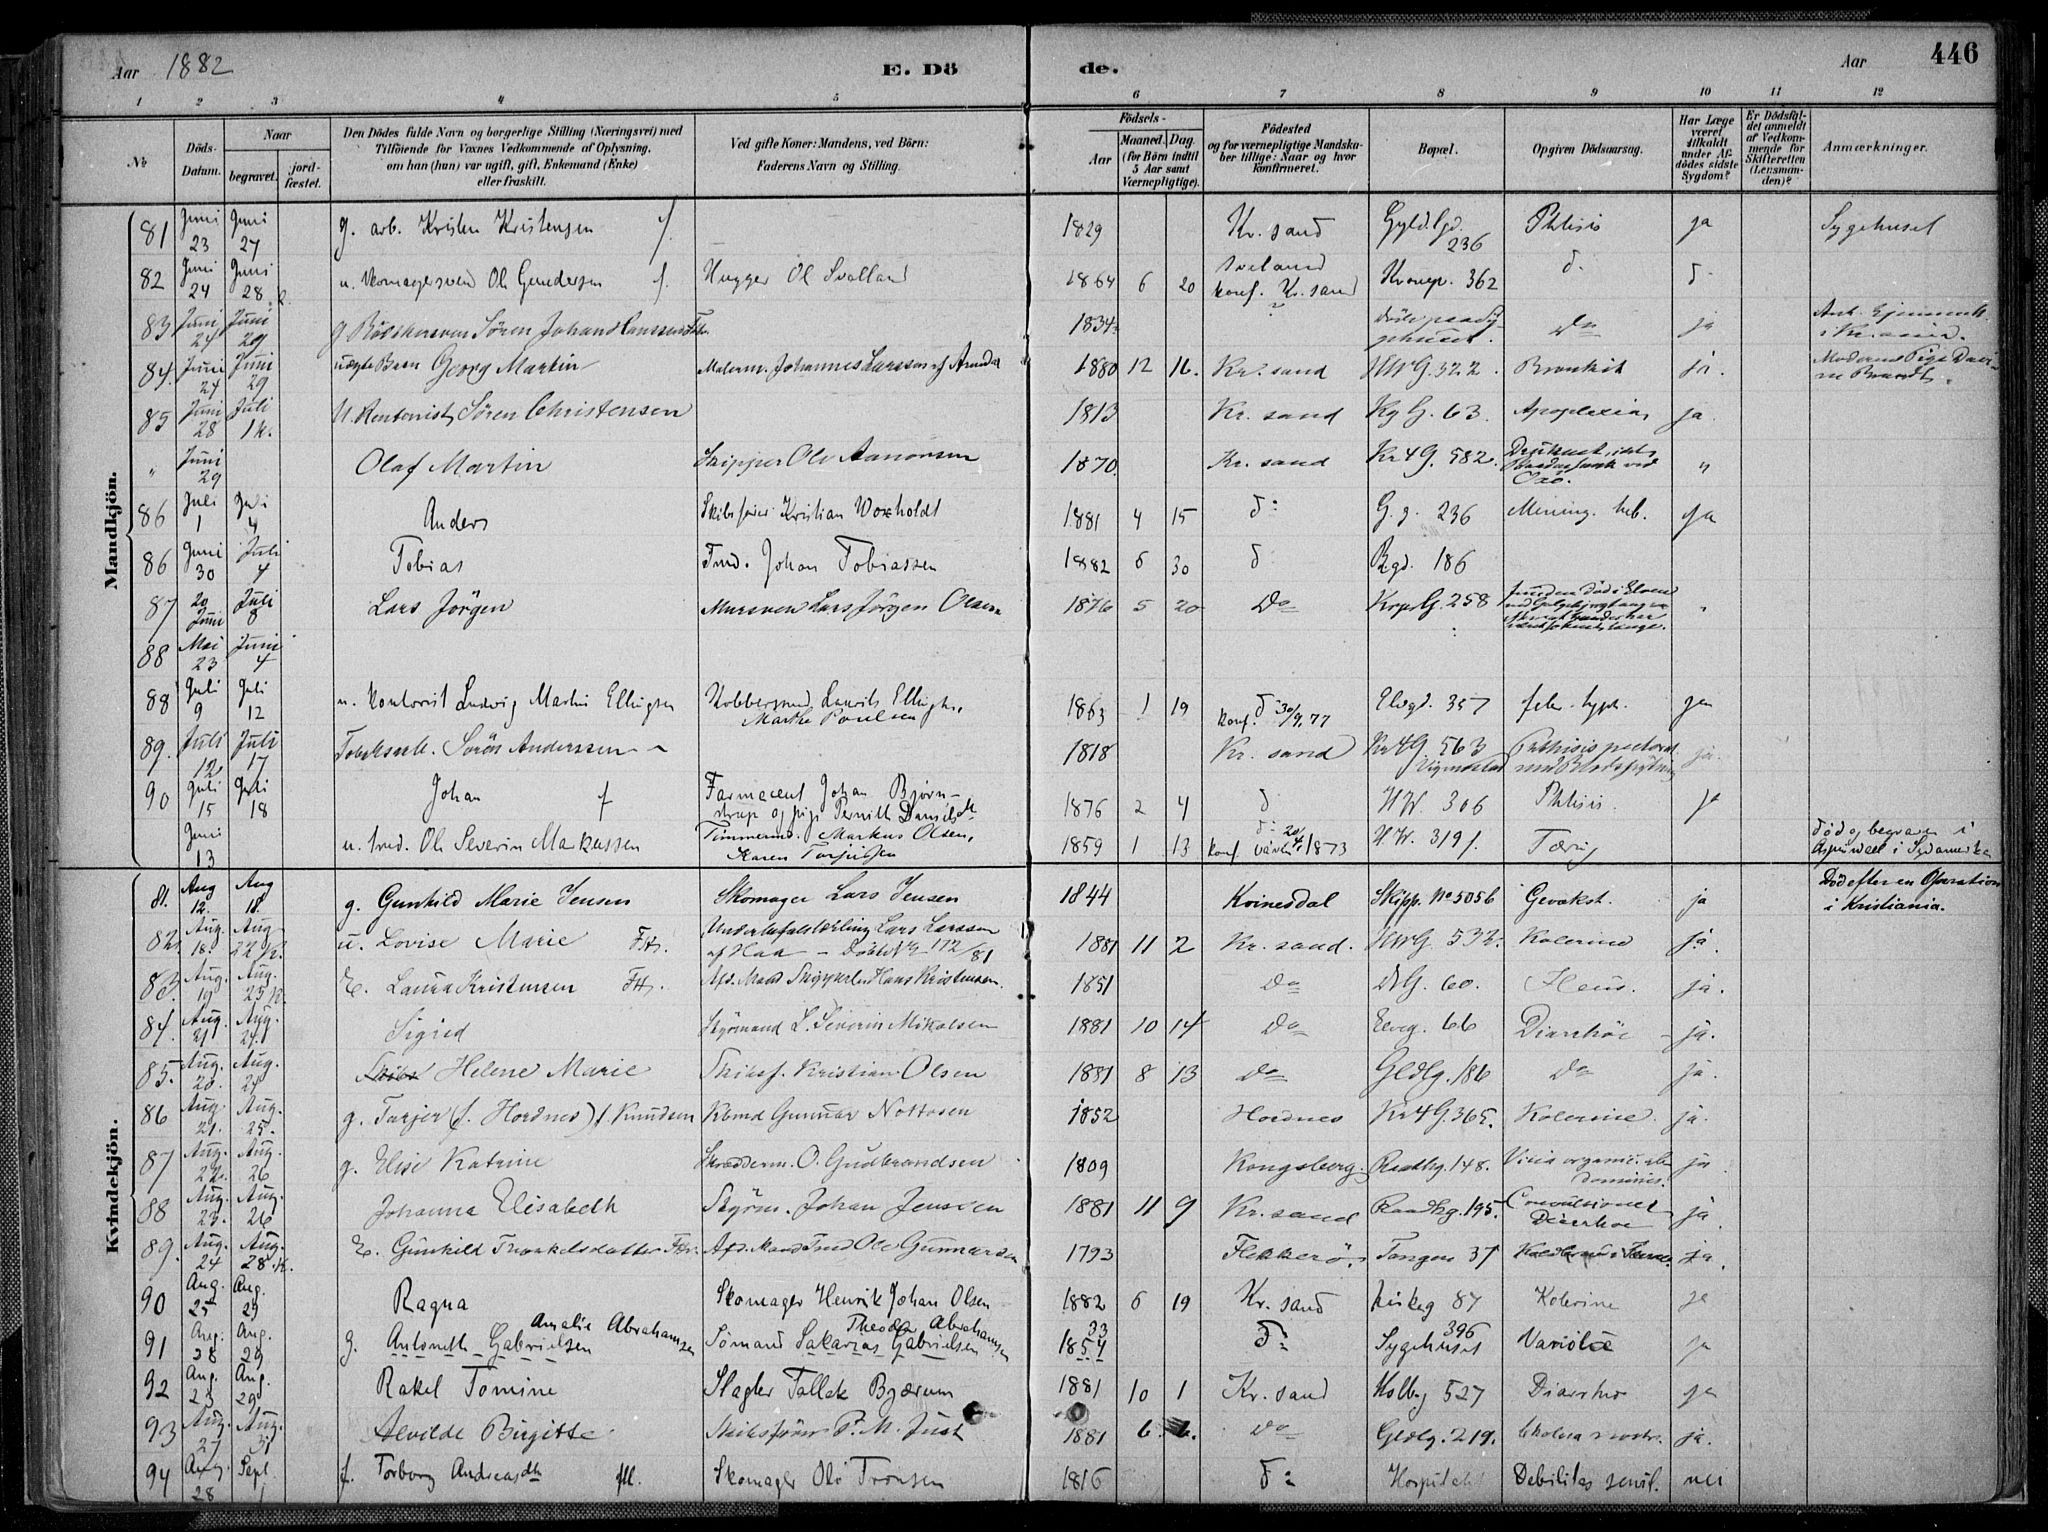 Aar 1882
E. Döde.
Aar
446
1 2 3 4 5 6 7 8 9 10 11 12
No
Döds-Datum.
Naar begravet. jordfæstet.
Den Dödes fulde Navn og borgerlige Stilling (Næringsvei) med Tilföiende for Voxnes Vedkommende af Oplysning, om han (hun) var ugift, gift, Enkemand (Enke) eller fraskilt.
Ved gifte Koner: Mandens, ved Börn: Faderens Navn og Stilling.
Födsels- Aar Maaned. Dag. (for Börn indtil 5 Aar samt Værnepligtige).
Födested og for værnepligtige Mandskaber tillige: Naar og hvor konfirmeret.
Bopæl.
Opgiven Dödsaarsag.
Har Læge været tilkaldt under Afdödes sidste Sygdom?
Er Dödsfaldet anmeldt af Vedkommende for Skifteretten (Lensmanden)?
Anmærkninger.
Mandkjön.
81 Juni 23 Juni 27 g. arb. Kristen Kristensen f. 1829 Kr. sand Gyld. gd. 236 Phtisis ja Sygehuset
82 Juni 24 Juni 28 u. Skomagersvend Ole Gundersen f. Hugger Ol Svaland 1864 6 20 Sveland konf. Kr. sand Kronpr. 362 d. d.
83 Juni 24 Juni 29 g. Bödkersven Sören Johan 1834 ? Do ja
84. Juni 24 Juni 29 uægte Barn Georg Martin Malerm. Johannes Larssen af Arendal 1880 12 16. Kr. sand HWG. 322. Bronkit ja. Moderen Pige Brandt.
85 Juni 28 Juli 1 k. U. Rentenist Sören Christensen 1813 Kr. sand Kg G. 63. Apoplexia ja.
" Juni 29 Olaf Martin Skipper Ole Aanonsen 1870 Kr. sand Kr 4 G. 582. Druknet, ved Oxö. "
86 Juli 1 Juli 4 Anders Skibsfører Kristian Woxholdt 1881 4 15 d: G. g. 236 Mening. tub. ja
86 Juni 30 Juli 4 Tobias Tmd. Johan Tobiassen 1882 6 30 d Bgd. 186
87 20 Juni Juli 8 Lars Jörgen Mursven Lars Jörgen Olsen 1876 5 20 Do KrpG. 258 funden död i Elven "
88 Mai 23 Juni 4
88 Juli 9 Juli 12 u. Kontorist Ludvig Martin Ellingsen Kobbersmed Laurits Ellingsen, Marthe Poulsen 1863 1 19 d konf. 30/9 77 Elvgd. 357 febr. typh. ja
89. Juli 12 Juli 17 Tobaksarb. Sören Anderssen 1818 Kr. sand Kr 4 G. 563 Phthisis pectoral. med Blodspytning ja.
90 Juli 15 Juli 18 Johan f Farmaceut Johan Bjørnstrup og pige Pernille Danielsdt. 1876 2 4 d HW 306 Phtisis. ja
Juni 13 u. tmd. Ole Severin Markussen Timmermd. Markus Olsen, Karen Torjusen 1859 1 13 d: konf. 20/4 1873 HW. 319f. Tæring död og begraven i Aspinwall i Sydamerika
Kvindekjön.
81. Aug 12. Aug 18. g. Gunhild Marie Jensen Skomager Lars Jensen 1844 Kvinesdal Skipp. No 505 b Gevækst. ja Död efter en Operation i Kristiania.
82. Aug. 18. Aug. 22 k. u. Lovise Marie FH. Underbefalslærling Lars Larssen af Haa – Döbte No 172/81 1881 11 2 Kr. sand. HWG. 532. Kolerine ja.
83. Aug. 19 Aug. 25 k. E. Laura Kristensen FH. Afd. Mand Skipper Hans Kristensen. 1851 Do DrG. 60. Ileus. ja.
84. Aug. 21 Aug. 24. Sigrid Styrmand L. Severin Mikalsen 1881 10 14 Do Elvg. 66 Diarrhöe ja.
85. Aug. 20. Aug. 24 Helene Marie Skibsf. Kristian Olsen 1881 8 13 Do Gldlg. 186 Do ja.
86 Aug. 21. Aug. 25. g. Tarjer (f. Hordnes) f. Knudsen Kbmd Gunnar Nottosen 1852 Hordnes Kr 4 G. 365. Kolerine. ja.
87 Aug. 22. Aug. 26 g. Elise Katrine Skrædderm. O. Gudbrandsen 1809 Kongsberg. Raadhg. 148. Vitia organic. abdominis. ja
88 Aug. 23. Aug. 26 Johanna Elisabeth Styrm. Johan Jenssen 1881 11 9 Kr. sand Raadhg. 195. Convulsioner Diarrhoe ja.
89. Aug. 24 Aug. 28. k. E. Gunhild Tronkelsdatter FH. Afd. Mand Tmd Ole Gunnarsen 1793 Flekkerö. Tangen 37 ja.
90 Aug. 25 Aug. 29 Ragna Skomager Henrik Johan Olsen 1882 6 19 Kr. sand Kirkeg 87 Kolerine ja
91 Aug. 28 Aug. 29 g. Antonette Gabrielsen Amalie Abrahamsen Sömand Sakarias Gabrielsen Theodor Abrahamsen 1854 33 d: Sygehuset 396 Variolæ ja
92 Aug. 25 Aug. 29 Rakel Tomine Slagter Tallak Bjærum 1881 10 1 Kr. sand Holbg 527 Diarrhoe ja
93 Aug. 27 Aug. 31 Alvilde Birgitte Skibsförer P. M. Just 1881 6. 6. Do Gldlg. 219. Cholera nostr. ja.
94 Aug. 28 Sept. 1 f. Torborg Andreasdtr fll. Skomager Ole Tronsen 1816 d: Hospitalet Debilitas senil. nei